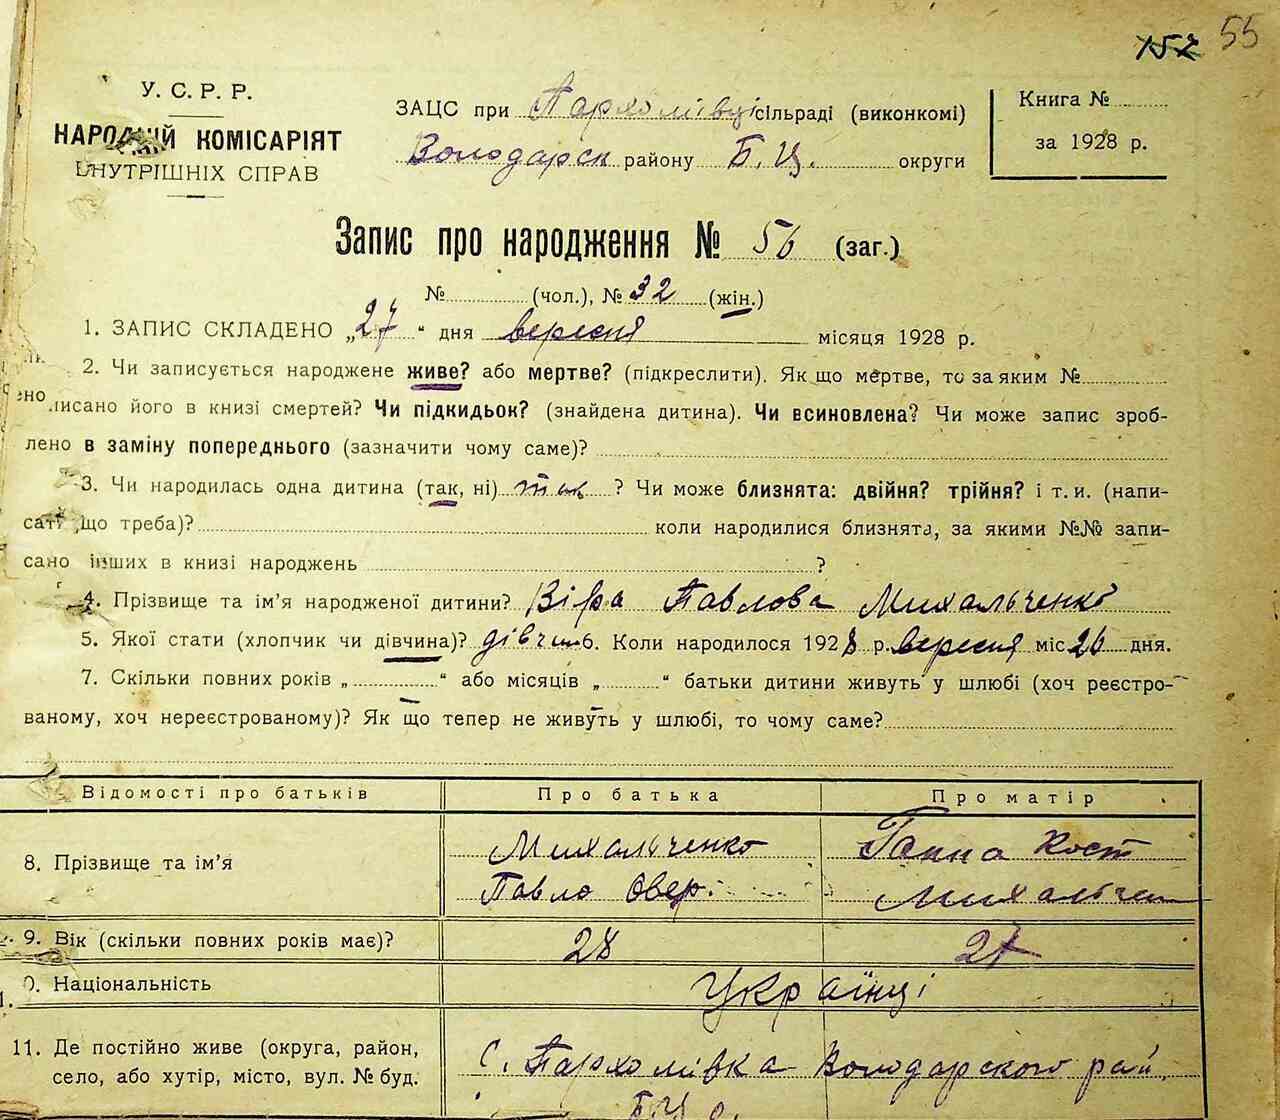 157 55
У. С. Р. Р.
НАРОДНІЙ КОМІСАРІЯТ
ВНУТРІШНІХ СПРАВ
ЗАЦС при Пархомівці сільраді (виконкомі)
Володарск району Б. Ц. округи
Книга №
за 1928 р.
Запис про народження № 56 (заг.)
№ (чол.), № 32 (жін.)
1. ЗАПИС СКЛАДЕНО „27“ дня вересня місяця 1928 р.
2. Чи записується народжене живе? або мертве? (підкреслити). Як що мертве, то за яким №
писано його в книзі смертей? Чи підкидьок? (знайдена дитина). Чи всиновлена? Чи може запис зроб-
лено в заміну попереднього (зазначити чому саме)?
3. Чи народилась одна дитина (так, ні) так ? Чи може близнята: двійня? трійня? і т. и. (напи-
сати що треба)? коли народилися близнята, за якими №№ запи-
сано інших в книзі народжень ?
4. Прізвище та ім’я народженої дитини? Віра Павлова Михальченко
5. Якої стати (хлопчик чи дівчина)? дівчин 6. Коли народилося 1928 р. вересня міс 26 дня.
7. Скільки повних років „ “ або місяців „ “ батьки дитини живуть у шлюбі (хоч реєстро-
ваному, хоч нереєстрованому)? Як що тепер не живуть у шлюбі, то чому саме?
Відомості про батьків Про батька Про матір
8. Прізвище та ім’я Михальченко Ганна Кост
Павло Овер. Михальчен
9. Вік (скільки повних років має)? 28 27
0. Національність Українці
11. Де постійно живе (округа, район, с. Пархомівка Володарского рай.
село, або хутір, місто, вул. № буд. БЦ о.